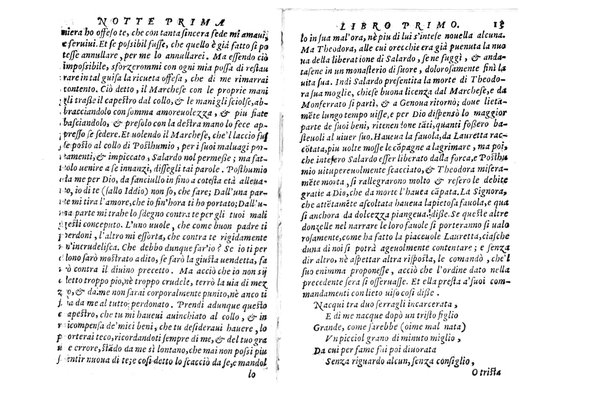 NOTTE PRIMA
miera ho offeso te, che con tanta sincera fede mi amaui,
e seruiui. Et se possibil fusse, che quello è già fatto si po
tesse annullare, per me lo annullarei. Ma essendo ciò
impossibile, sforzerommi con ogni mia possa di restau-
rare in tal guisa la riceuta offesa, che di me rimarrai
contento. Ciò detto, il Marchese con le proprie mani
gli trasse il capestro dal collo, & le mani gli sciolse, ab-
bracciandolo con somma amoreuolezza, & piu fiate
basciandolo, & presolo con la destra mano lo fece ap-
presso se sedere. Et uolendo il Marchese, che'l laccio fus
se posto al collo di Posthumio, per i suoi maluagi por-
tamenti, & impiccato, Salardo nol permesse; ma fat-
tosel uenire innanzi, dissegli tai parole. Posthumio
da me per Dio, da fanciullo fin a cotesta età alleua-
to, io di te (sallo Iddio) non so, che fare; Dall'una par-
te mi tira l'amore, che io fin'hora ti ho portato; Dall'al
tra parte mi trahe lo sdegno contra te per gli tuoi mali
gesti conceputo. L'uno uuole, che come buon padre ti
perdoni, l'altro mi essorta, che contra te rigidamente
m'incrudelisca. Che debbo dunque far'io? Se io ti per
dono sarò mostrato a dito, se farò la giusta uendetta, fa
rò contra il diuino precetto. Ma acciò che io non sia
detto troppo pio, nè troppo crudele, terrò la uia di mez
zo, & da me non sarai corporalmente punito, nè anco ti
sia da me al tutto perdonato. Prendi adunque questo
capestro, che tu mi haueui auinchiato al collo, & in
ricompensa de'miei beni, che tu desiderauì hauere, lo
porterai teco, ricordandoti sempre di me, & del tuo gra
ue errore, stādo da me sì lontano, che mai non possi piu
sentir nuoua di te; e cosi detto lo scacciò da se, e mandol
lo
LIBRO PRIMO. 15
lo in sua mal'ora, nè piu di lui s'intese nouella alcuna.
Ma Theodora, alle cui orecchie era già puenuta la nuo
ua della liberatione di Salardo, se ne fuggì, & anda-
tasene in un monasterio di suore, dolorosamente finì la
uita sua. Indi Salardo presentita la morte di Theodo-
ra sua moglie, chiese buona licenza dal Marchese, & da
Monferrato si partì, & a Genoua ritornò; doue lieta-
mēte lungo tempo uisse, & per Dio dispensò la maggior
parte de'suoi beni, ritenendone tāti, quanti fossero ba-
steuoli al uiuer suo. Haueua la fauola, da Lauretta rac-
contata, piu uolte mosse le cōpagne a lagrimare, ma poi,
che intesero Salardo esser liberato dalla forca, e Posthu
mio uituperosamente scacciato, & Theodora misera-
mēte morta, si rallegrorono molto & resero le debite
gratie a Dio, che da morte l'haueа cāpato. La Signora,
che attētamēte ascoltata haueua la pietosa fauola, e qua
si anchora da dolcezza piangeua; disse. Se queste altre
donzelle nel narrare le loro fauole si porteranno sì ualo
rosamente, come ha fatto la piaceuole Lauretta, ciascu-
na di noi si potrà ageuolmente contentare; e senza
dir altro, nè aspettar altra risposta, le comandò, che'l
suo enimma proponesse, acciò che l'ordine dato nella
precedente sera si osseruasse. Et ella presta a'suoi co-
mandamenti con lieto uiso cosi disse.
Nacqui tra duo serragli incarcerata,
E di me nacque dopo un tristo figlio
Grande, come sarebbe (oime mal nata)
Vn picciol grano di minuto miglio,
Da cui per fame fui poi diuorata
Senza riguardo alcun, senza consiglio,
O trista